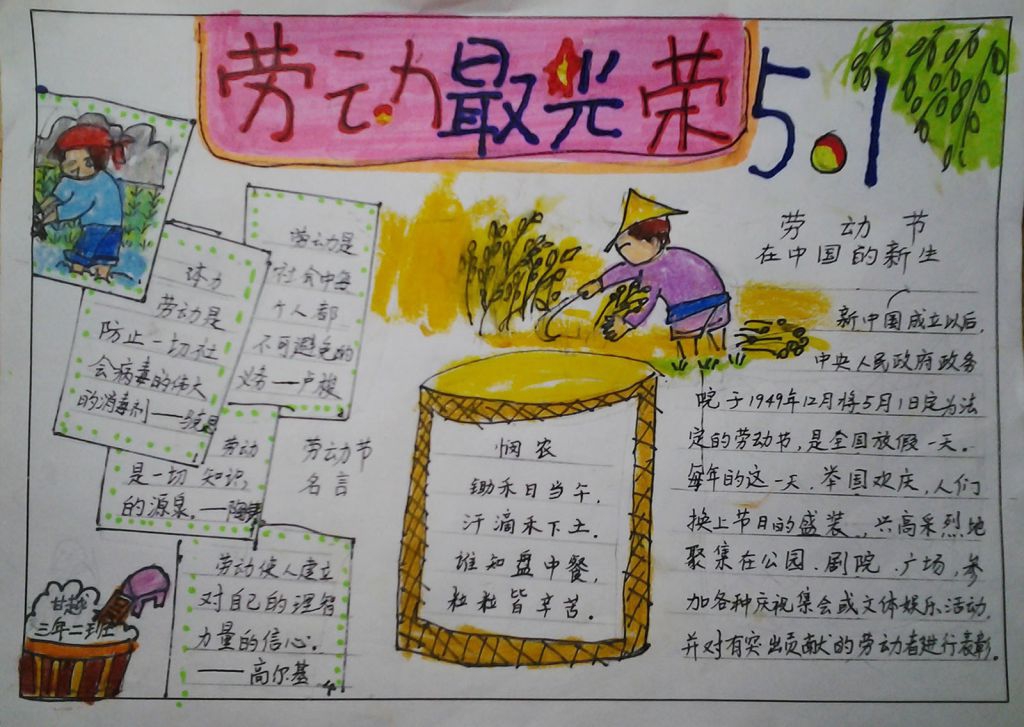 劳动最光荣
5.1
劳动是
社会中每
个人都
不可避免的
义务——卢梭
体力
劳动是
防止一切社
会病毒的伟大
的消毒剂——
劳动
是一切知识
的源泉。——
劳动节
名言
劳动使人建立
对自己的理智
力量的信心。
——高尔基
甘越
三年二班
悯农
锄禾日当午,
汗滴禾下土。
谁知盘中餐,
粒粒皆辛苦。
劳动节
在中国的新生
新中国成立以后,
中央人民政府政务
院于1949年12月将5月1日定为法
定的劳动节,是全国放假一天。
每年的这一天,举国欢庆,人们
换上节日的盛装,兴高采烈地
聚集在公园、剧院、广场,参
加各种庆祝集会或文体娱乐活动,
并对有突出贡献的劳动者进行表彰。